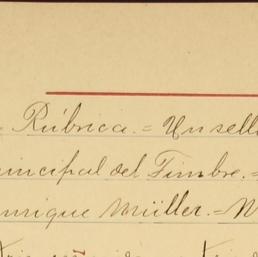 Rúbrica.= Un sell
rincipal del Timbre.=
nrique Müller.=